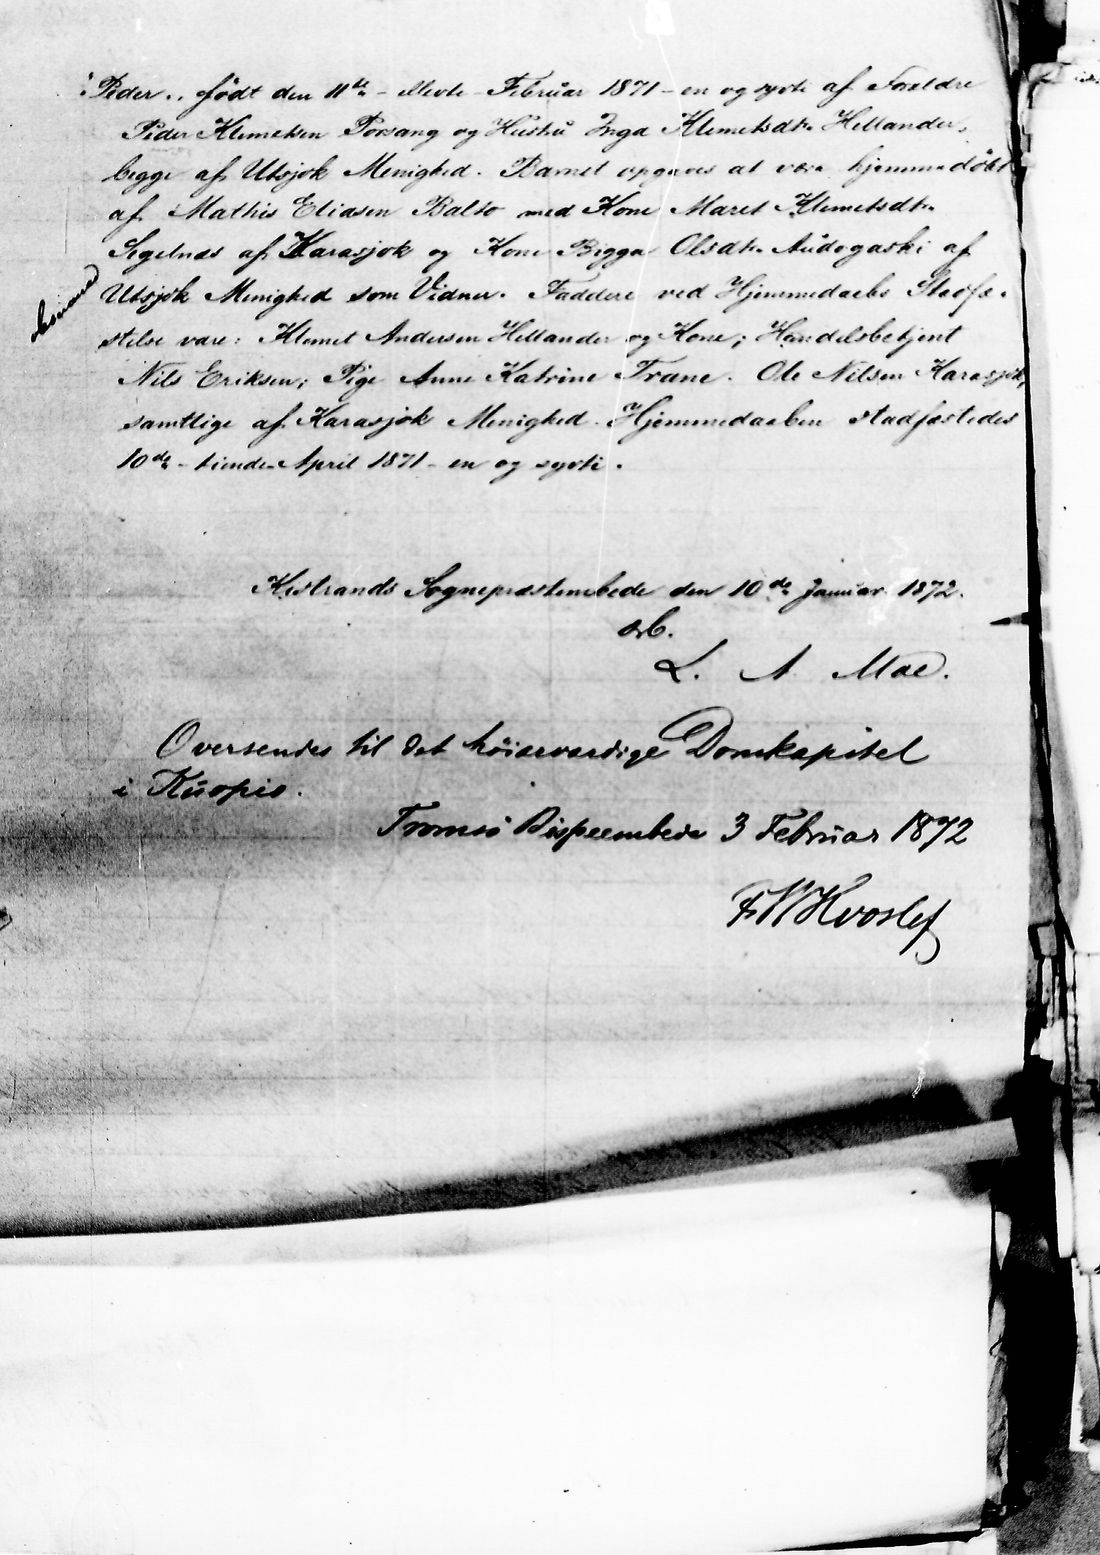 Peder, født den 11te - ellevte - Februar 1871 - en og syvti af Foreldre
Peder Klemetsen Porsang og Hustru Inga Klemetsdtr. Hellander,
begge af Utsjok Menighed. Barnet opgaves at være hjemmedøbt
af Mathis Eliasen Balto med Kone Maret Klemetsdtr.
Segelnæs af Karasjok og Kone Bigga Olsdtr. Audogaski af
Utsjok Menighed som Vidner. Faddere ved Hjemmedaabs Stadfæ-
stelse vare: Klemet Andersen Hellander og Kone; Handelsbetjent
Nils Eriksen; Pige Anne Katrine Trane. Ole Nilsen Karasjok,
samtlige af Karasjok Menighed. Hjemmedaaben stadfæstedes
10de - tiende April 1871 - en og syvti.
Kistrands Sognepræstembede den 10de Januar 1872.
L. A. Moe.
Oversendes til det höiærværdige Domkapitel
i Kuopio.
Tromsö Bispeembede 3 Februar 1872
F W Hvoslef